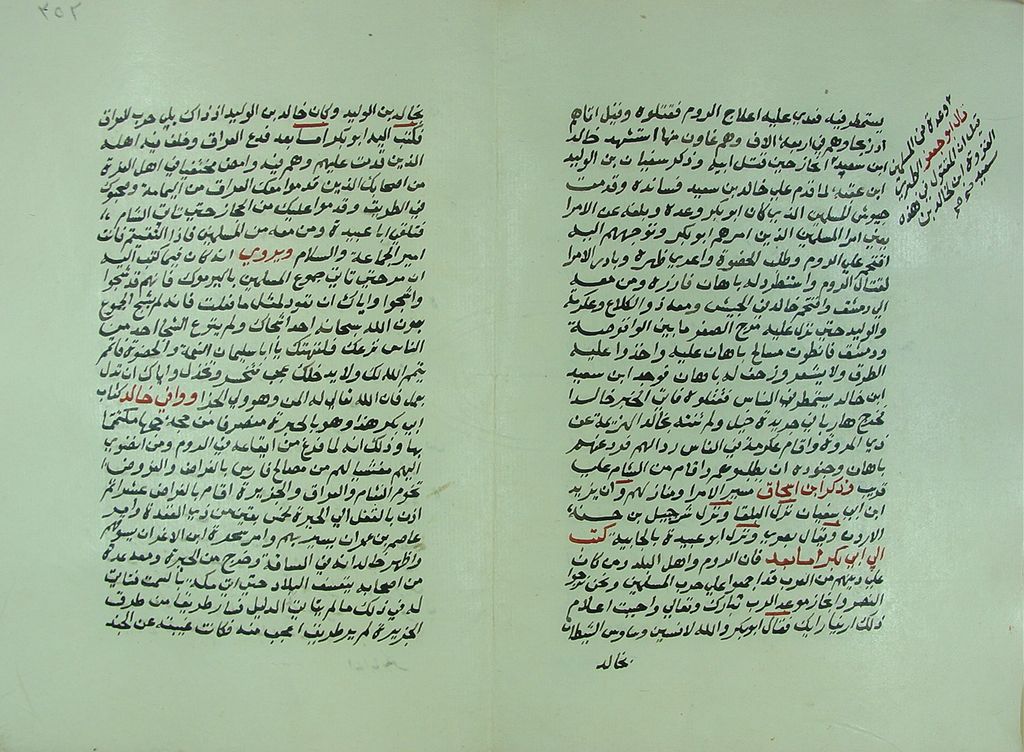 يستمطر فيه فعدي عليه اعلاج الروم فقتلوه وقيل اتاهم
ادريجا وهم في اربعة الاف وهم غاون منها استشهد خالد
ابن سعيد الخارجين فقتل ابيه وذكر سفيان بن الوليد
ابن عقبة لما قدم علي خالد بن سعيد فسانده وقدمت
جيوش المسلمين الذي كان ابو بكر وعده وبلغه عن الامرا
يعني امرا المسلمين الذين امرهم ابو بكر وتوجههم اليه
اقتحم علي الروم وطلب الحضوة واعري ظهره وبادر الامرا
لقتال الروم واستطرد له باهان فارزه ومن معه
الي دمشق واقتحم خالد في الجيش ومعه ذو الكلاع وعكرمة
والوليد حتي نزل عليه مرج الصفر ما بين الواقوصة
ودمشق فانطوت مسالح باهان عليه واخذوا عليه
الطرق ولا يشعر وزحف له باهان فوجد ابن سعيد
ابن خالد يستمطر في الناس فقتلوه فاتي الخبر خالدا
فخرج هاربا في جريدة خيل ولم تنته بخالد الهزيمة عن
ذي المروة واقام عكرمة في الناس ردا لهم فرد عنهم
باهان وجنوده ان يطلبوهم واقام من الشام علي
قريب وذكر ابن اسحاق مسير الامرا ومنازلهم وان يزيد
ابن ابي سفيان نزل البلقا ونزل شرحبيل بن حسنة
الاردن ويقال بصري ونزل ابو عبيدة بالجابية كتب
الي ابي بكر اما بعد فان الروم واهل البلد ومن كان
علي دينهم من العرب قد اجمعوا علي حرب المسلمين ونحن نرجوا
النصر وانجاز موعد الرب تبارك وتعالي واحببت اعلام
ذلك لترينا رايك فقال ابو بكر والله لانسين وساوس الشيطان
بخالد
وعدة من المسلمين
قال ابو جعفر الطبري
قيل ان المقتول في هذه
الغزوة ابن خالد بن
سعيد
٣٥٢
بخالد بن الوليد وكان خالد بن الوليد اذ ذاك يلي حرب العراق
فكتب اليه ابو بكر اما بعد فدع العراق وخلف فيه اهله
الذين قدمت عليهم وهم فيه وامض مختفيا في اهل القوة
من اصحابك الذين قدموا معك العراق من اليمامة وصحبوك
في الطريق وقدموا عليك من الحجاز حتي تاتي الشام
فتلقي ابا عبيدة ومن معه من المسلمين فاذا التقيتم فانت
امير الجماعة والسلام ويروي انه كان فيما كتب اليه
ان سر حتي تاتي جموع المسلمين باليرموك فانهم قد شجوا
واشجوا واياك ان تعود لمثل ما فعلت فانه لم يشج الجموع
بعون الله سبحانه احد اشجاك ولم ينزع الشجي احد من
الناس نزعك فلتهنئك يا ابا سليمان النعمة والحضوة فاتمم
يتمم الله لك ولا يدخلك عجب فتخسر وتخذل واياك ان تدل
بعمل فان الله تعالي له المن وهو ولي الجزا ووافي خالد كتاب
ابي بكر هذا وهو بالحيرة منصرفا من حجة حجها مكتتما
بها وذلك انه لما فرغ من ايقاعه في الروم ومن انضوي
اليهم مغيثا لهم من مصالح فارس بالفراض والفروض
تخوم الشام والعراق والجزيرة اقام بالفراض عشرا ثم
اذن بالقفل الي الحيرة لخمس بقين من ذي القعدة وامر
عاصم بن عمرو ان يسير بهم وامر شجرة ابن الاغر ان يسوقهم
واظهر خالد انه في الساقة وخرج من الحيرة ومعه عدة
من اصحابه يعتسف البلاد حتي اتي مكة بالسمت فتاتي
له في ذلك ما لم يتات لدليل فسار طريقا من طرق
الجزيرة لم ير طريق اعجب منه فكانت غيبته عن الجند